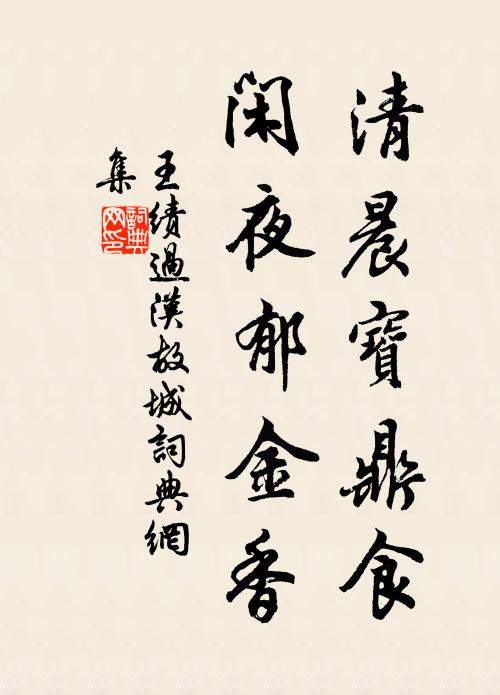 清晨寶鼎食
閑夜郁金香
王績過漢故城詞典網
集
詞典
网印